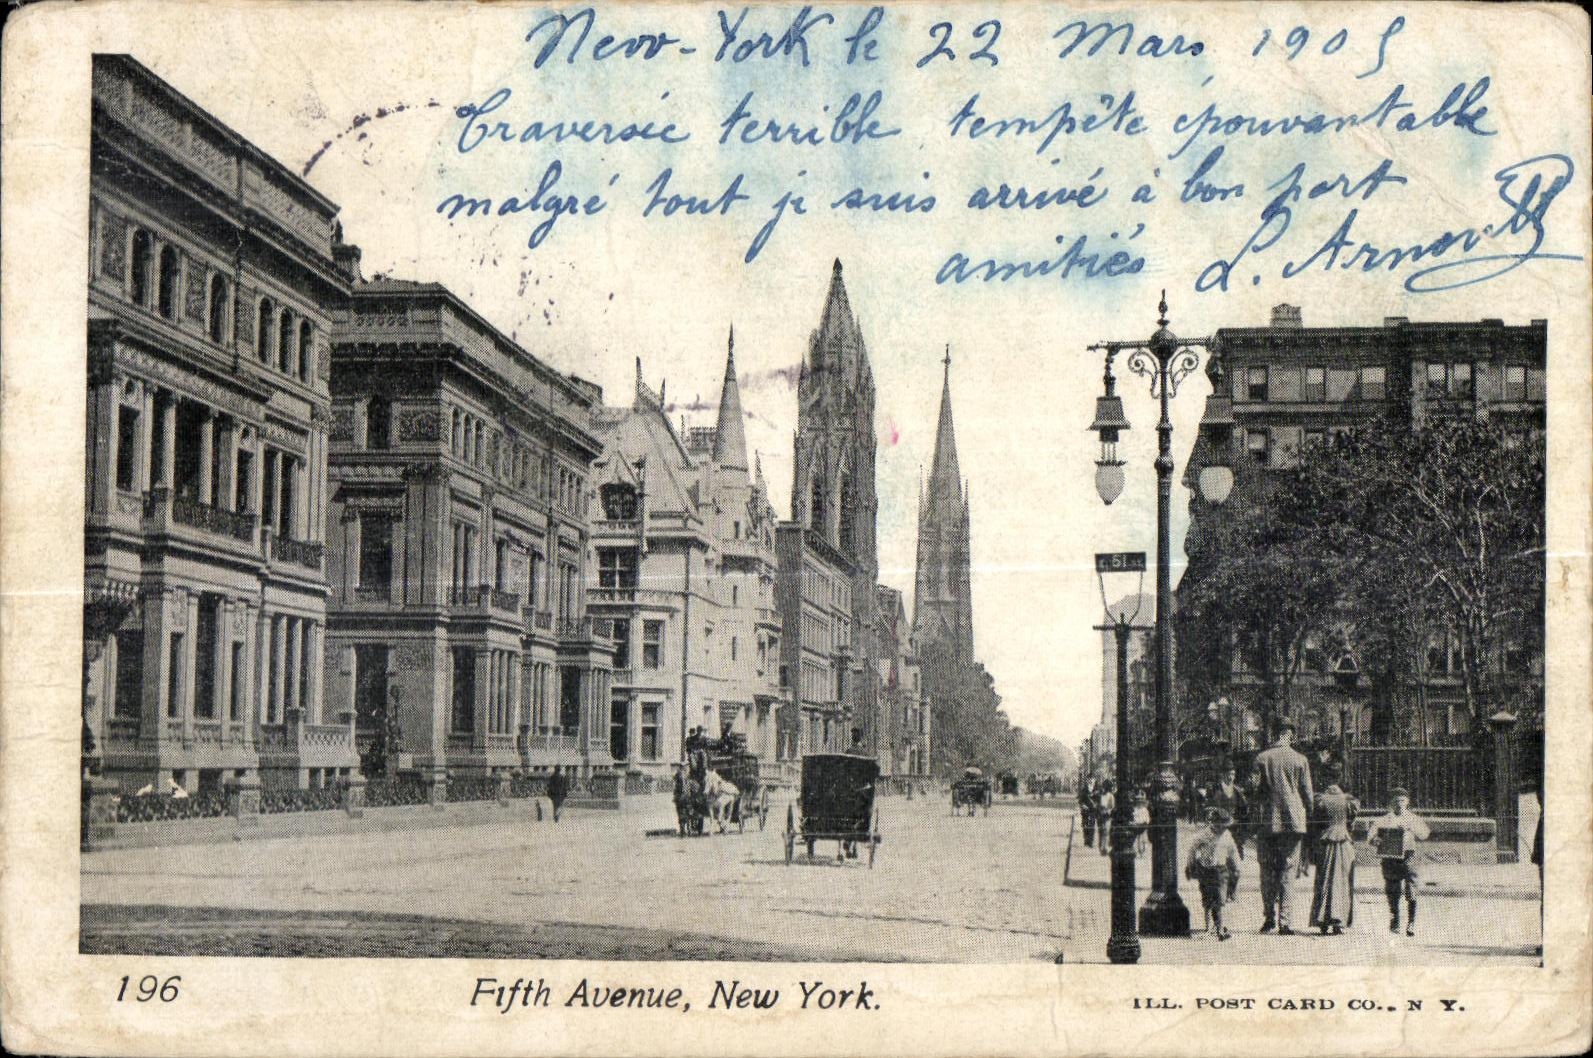 New-York le 22 Mars 1905
Traversée terrible tempête épouvantable
malgré tout je suis arrivé à bon port
amitiés L.
51
196 Fifth Avenue, New York. ILL. POST CARD CO.. N Y.